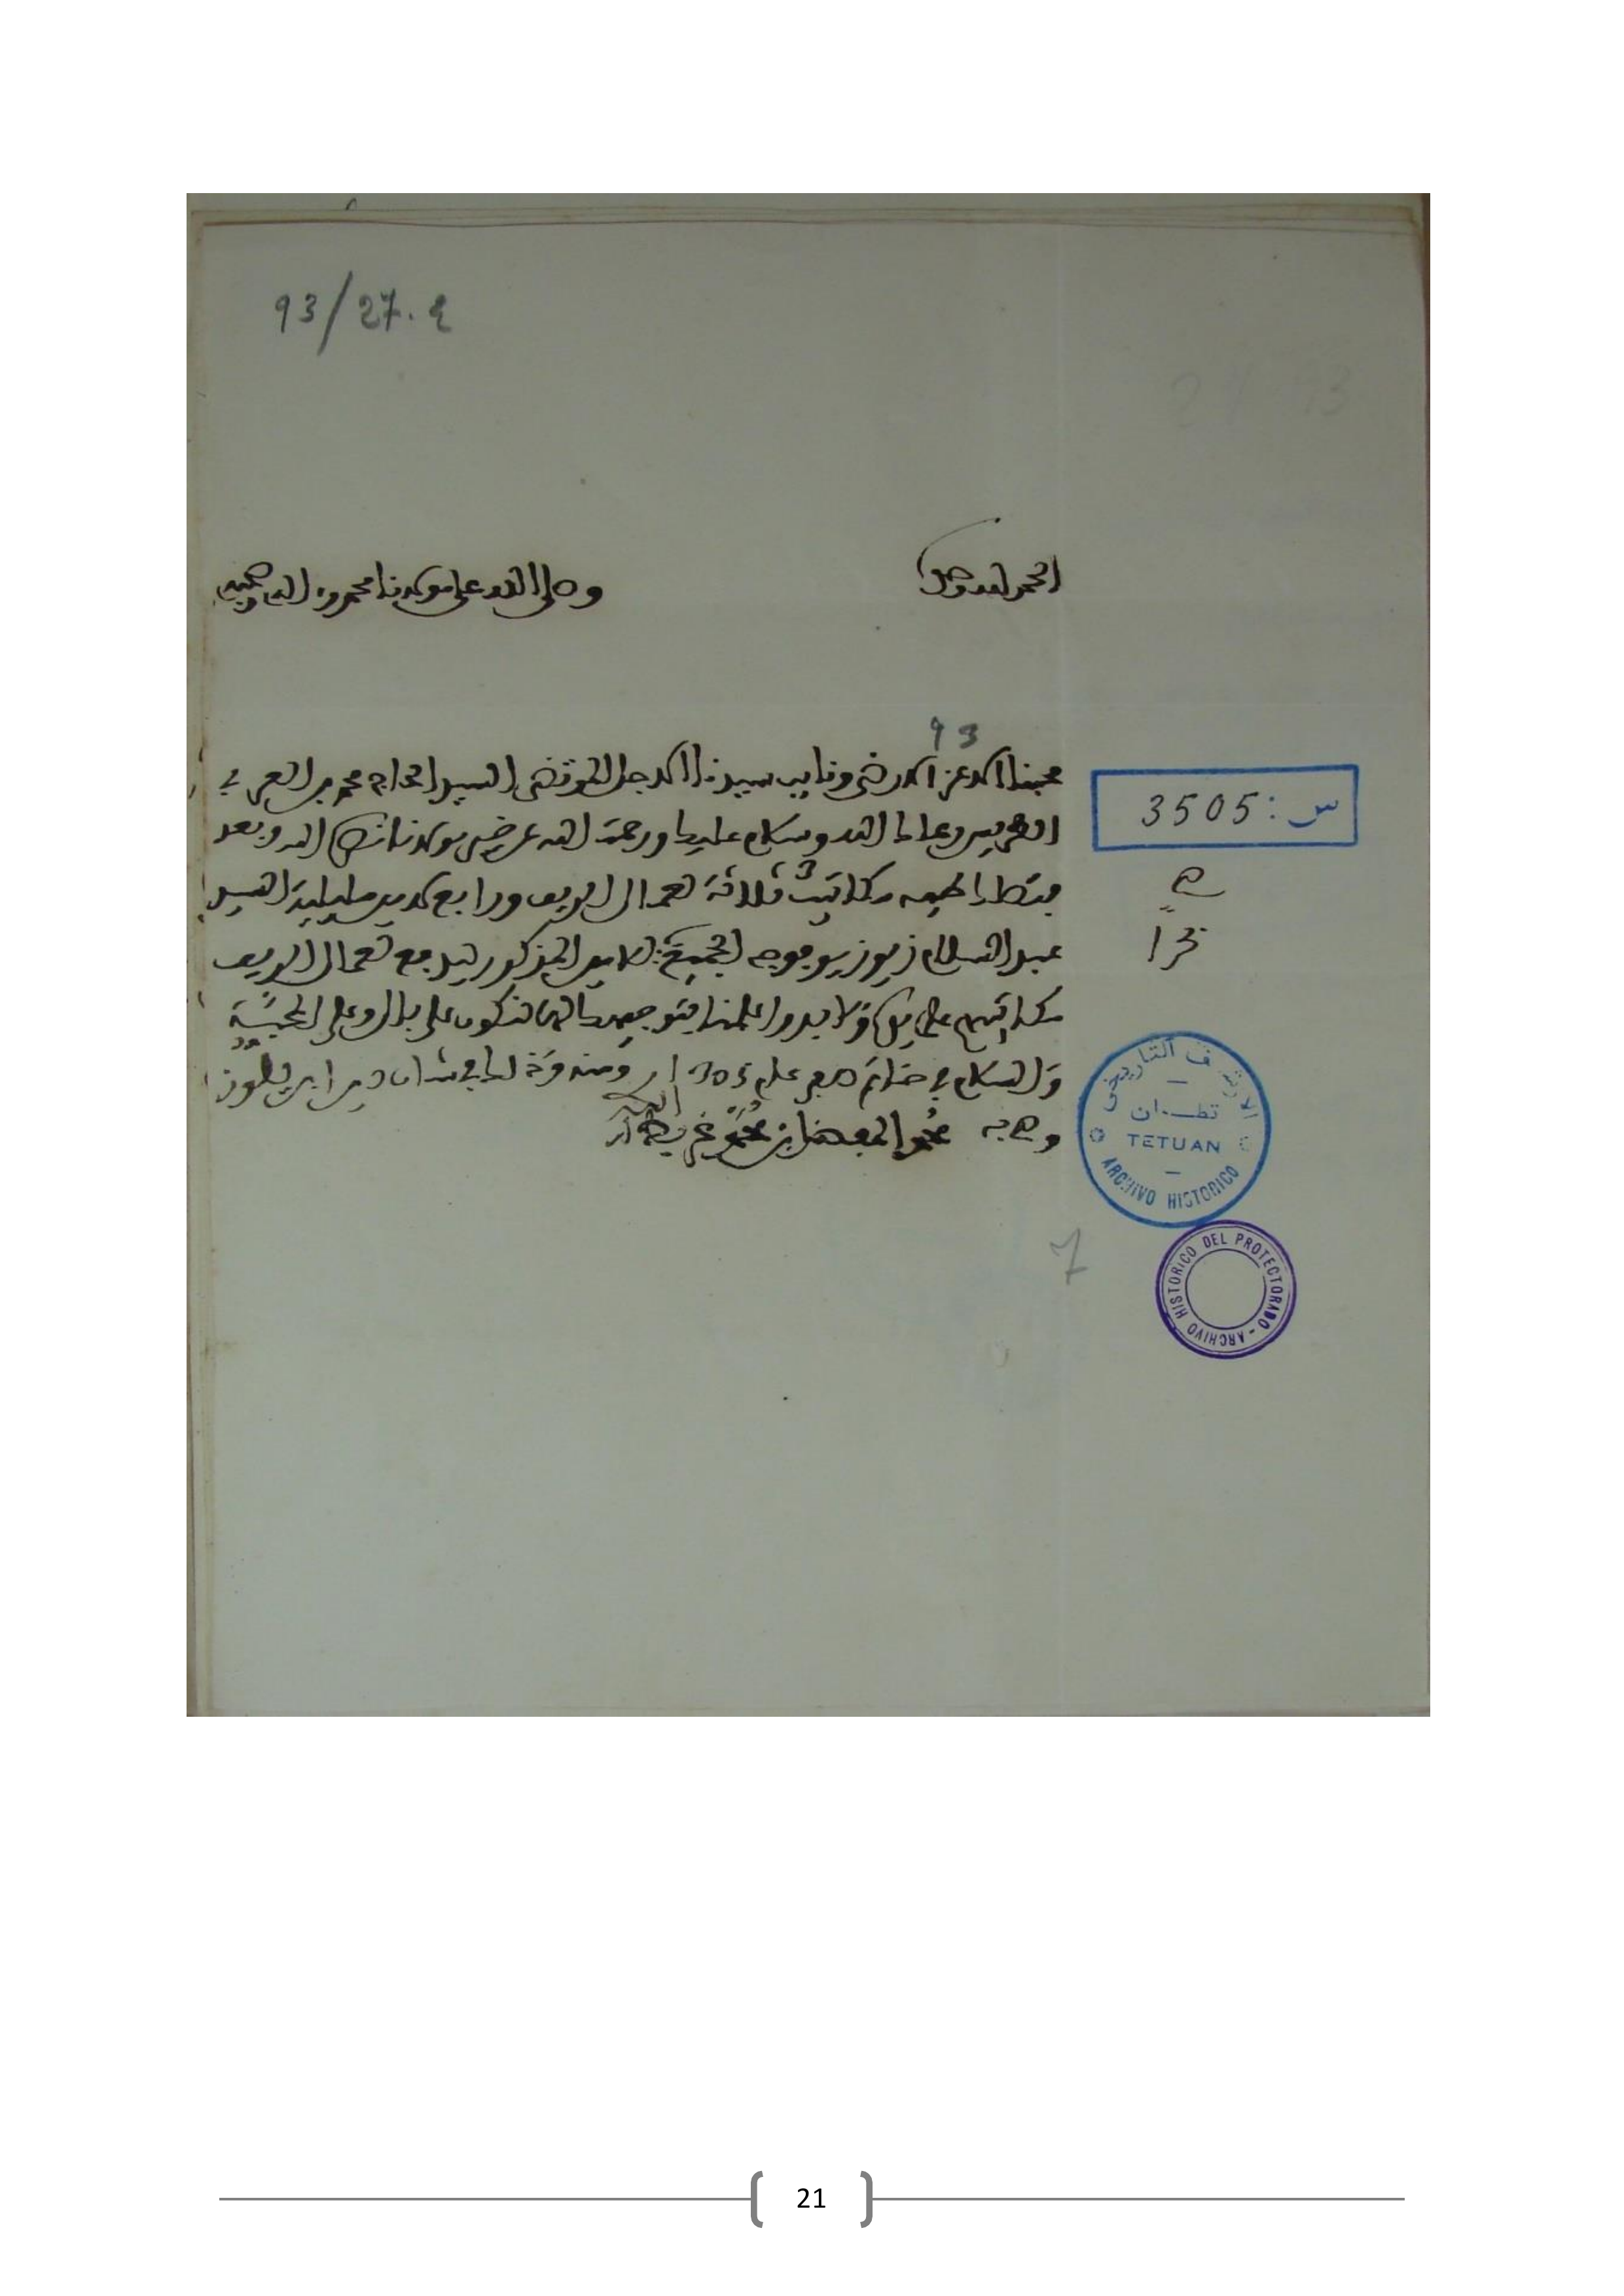 93/27.2
الحمد لله وحده
وصلى الله على مولانا محمد وءاله وصحبه
93
محبنا الاعز الارضى ونايب سيدنا الاجل المرتضى السيد الحاج محمد بن العربي
الطريس رعاك الله وسلام عليك ورحمة الله عن خير مولانا نصره الله وبعد
فتصلك طيه مكاتيب ثلاثة لعمال الريف ورابع لامين مليلية السيد
عبد السلام زنيبر فوجه الجميع للامين المذكور ليدفع لعمال الريف
مكاتبهم على يده ولابد واعلمنا بتوجيهك لها لنكون على بال وعلى المحبة
والسلام في ختام صفر عام 1305 ومنه
وصح به محمد المفضل بن محمد غريط
س: 3505
صح
نخرا
الارشيف التاريخي
تطـوان
TETUAN
ARCHIVO HISTORICO
7
ARCHIVO HISTORICO DEL PROTECTORADO
21